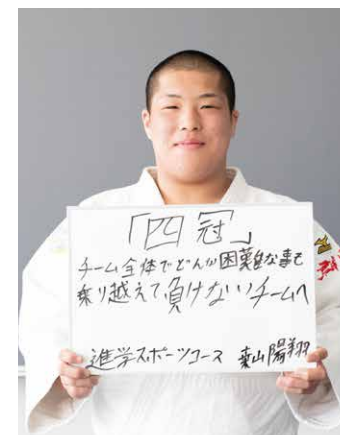 「四冠」
チーム全体でどんな困難な事も
乗り越えて負けないチームへ
進学スポーツコース 葉山陽翔